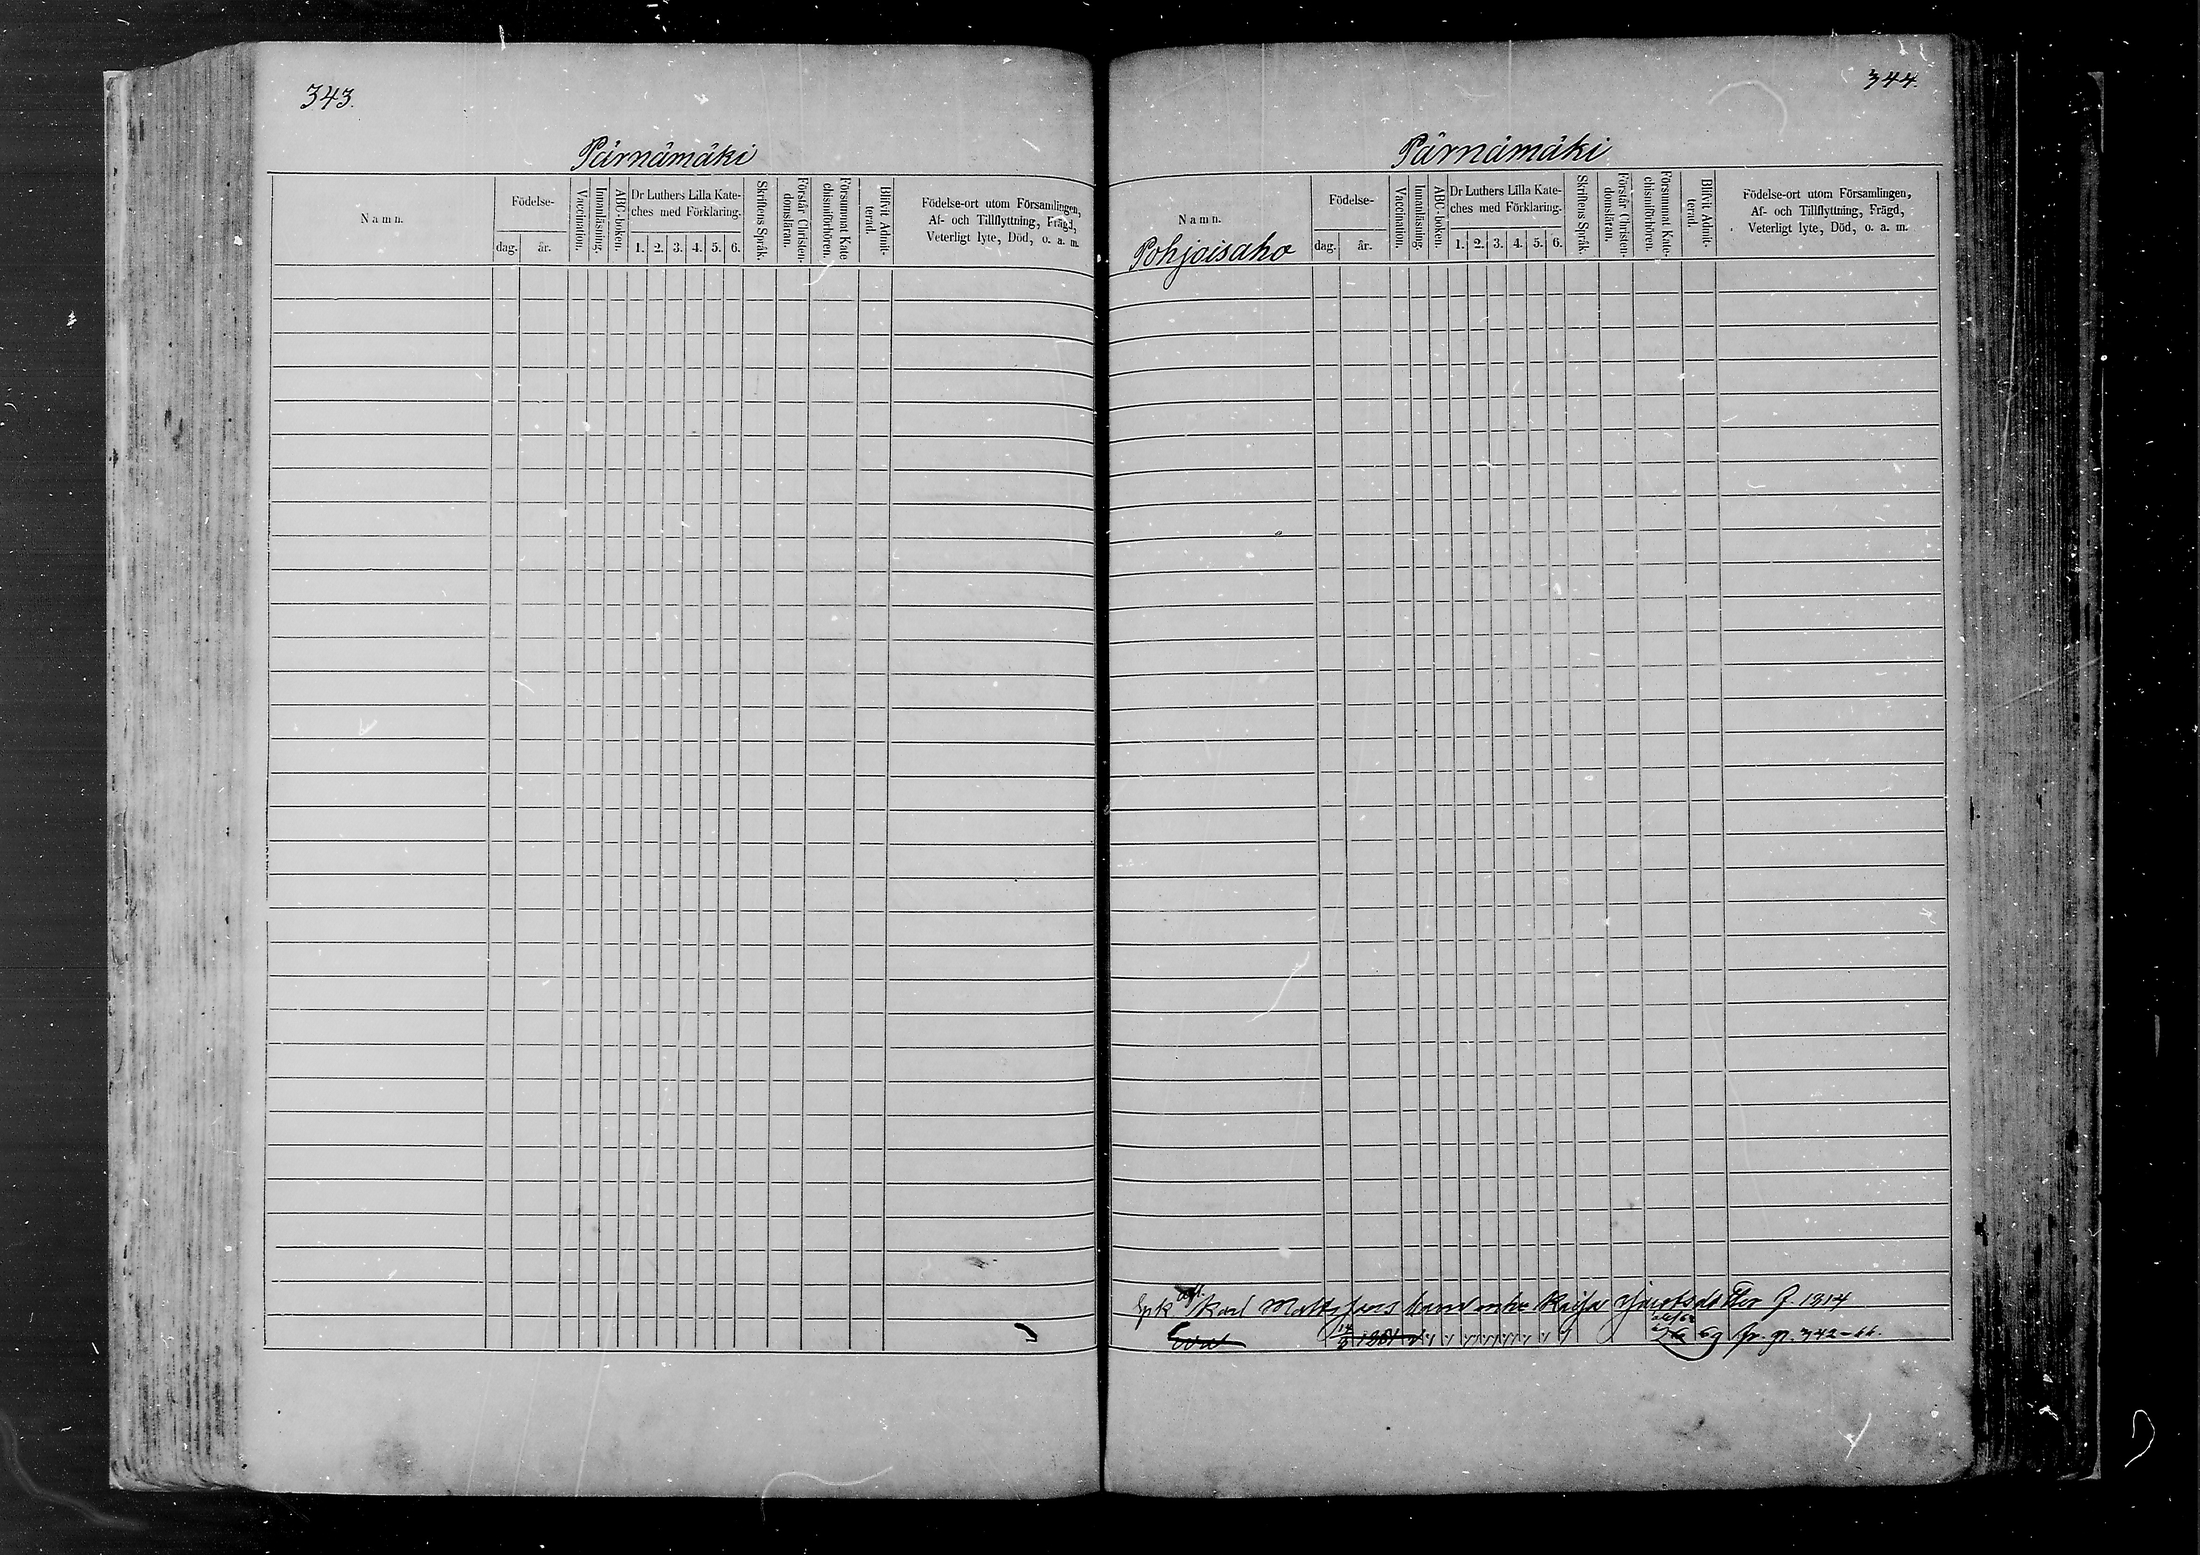 343.
Pärnämäki
Namn.
Födelse-
dag.
år.
Vaccination.
Innanläsning.
ABC-boken.
Dr Luthers Lilla Kate-
ches med Förklaring.
1. 2. 3. 4. 5. 6.
Skriftens Språk.
Förstår Christen-
domsläran.
Försummat Kate
chismiförhören.
Blifvit Admit-
terad.
Födelse-ort utom Församlingen,
Af- och Tillflyttning, Frägd,
Veterligt lyte, Död, o. a. m.
344.
Pärnämäki
Namn.
Pohjoisaho
Födelse-
dag.
år.
Vaccination.
Innanläsning.
ABC-boken.
Dr Luthers Lilla Kate-
ches med Förklaring.
1. 2. 3. 4. 5. 6.
Skriftens Språk.
Förstår Christen-
domsläran.
Försummat Kate-
chismiförhören.
Blifvit Admit-
terad.
Födelse-ort utom Församlingen,
Af- och Tillflyttning, Frägd,
Veterligt lyte, Död, o. a. m.
Karl Kaisa f. 1814
69 fr. p. 342-66.